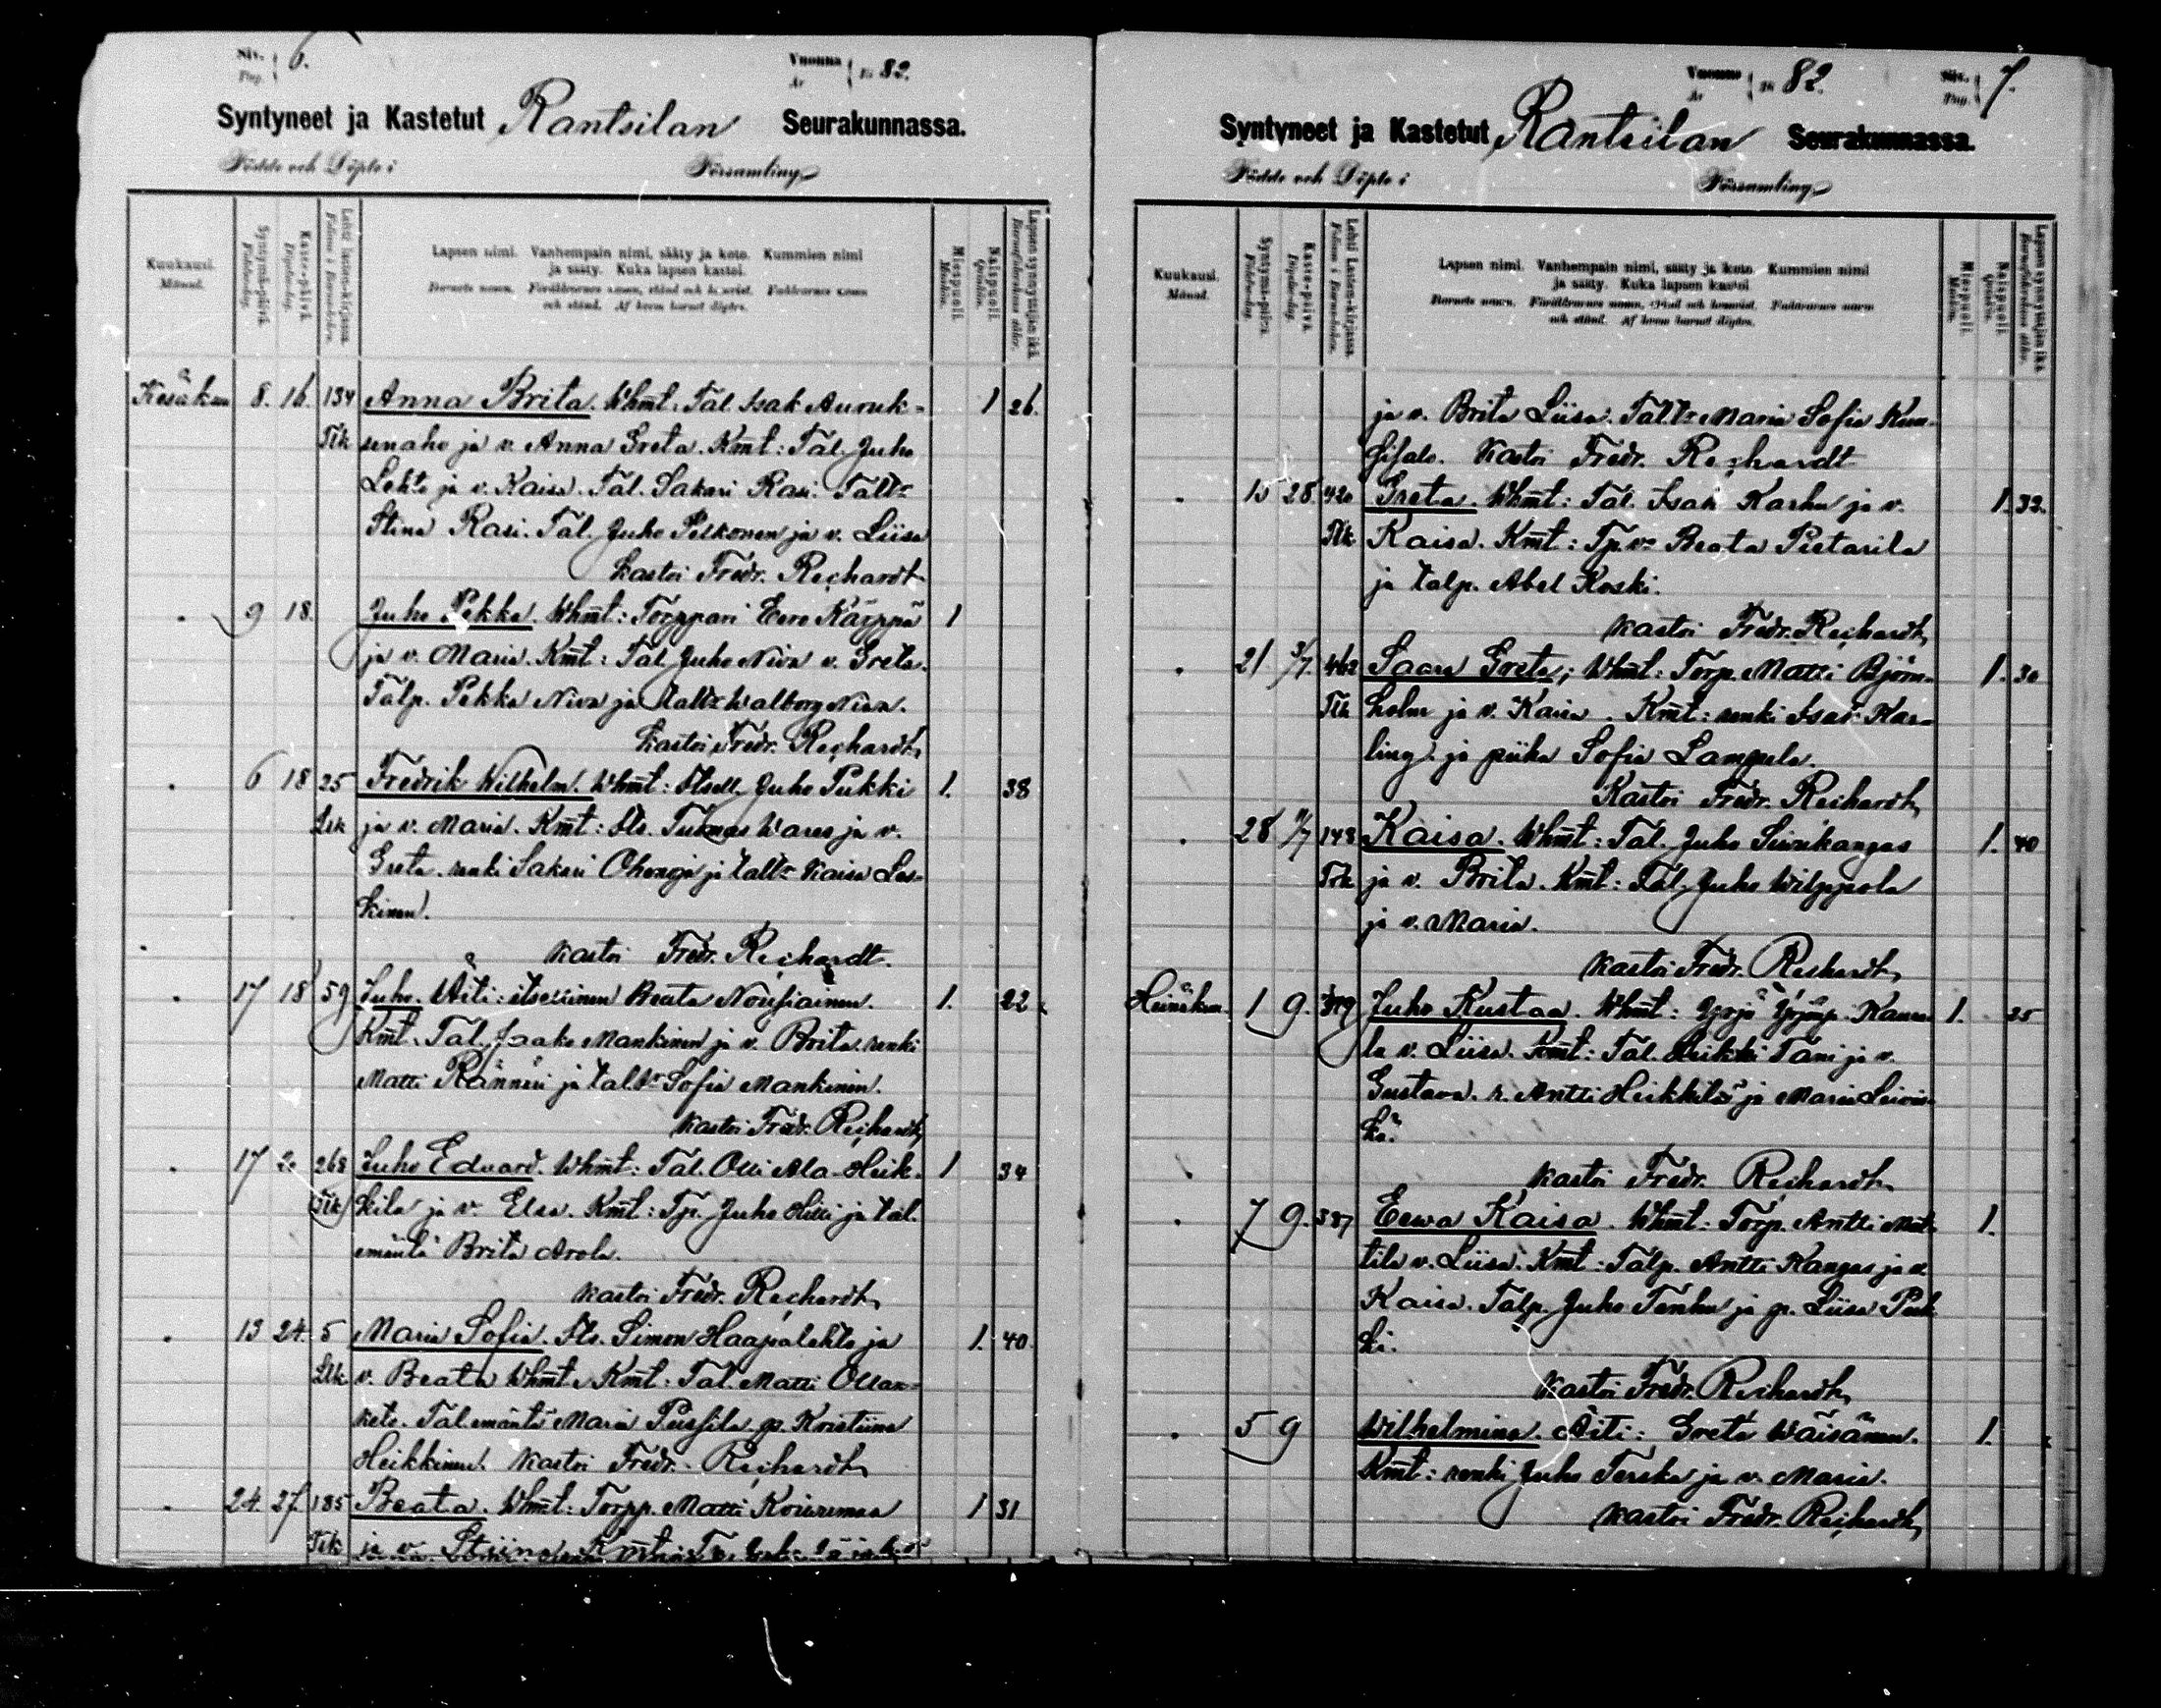 Siv. Pag. 6.
Vuonna År 1882.
Syntyneet ja Kastetut Rantsilan Seurakunnassa.
Födde och Döpte i Församling
Kuukausi. Månad.
Syntymä-päivä. Födelsedag.
Kaste-päivä. Döpelsedag.
Lehti Lasten-kirjassa. Folium i Barnaboken.
Lapsen nimi. Vanhempain nimi, sääty ja koto. Kummien nimi
ja sääty. Kuka lapsen kastoi.
Barnets namn. Föräldrarnes namn, stånd och hemvist. Faddrarnes namn
och stånd. Af hvem barnet döptes.
Miespuoli. Mankön.
Naispuoli. Qvinkön.
Lapsen synnyttäjän ikä. Barnaföderskans ålder.
Kesäkuu 8. 16. 134 Anna Brita. Whmt. Tal. Isak Auruk- 1 26.
Tlk senaho ja v. Anna Greta. Kmt: Tal. Juho
Lehto ja v. Kaisa. Tal. Sakari Rasi. Taltr
Stina Rasi. Tal. Juho Pelkonen ja v. Liisa
Kastoi Fredr. Reichardt
9 18. Juho Pekka. Whmt: Torppari Eero Kärppä 1
ja v. Maria. Kmt: Tal. Juho Niva v. Greta.
Talp. Pekka Niva ja taltr Walborg Niva.
Kastoi Fredr. Reichardt
6 18 25 Fredrik Wilhelm. Whmt: Itsell. Juho Pukki 1. 38
Llk ja v. Maria. Kmt: Its. Tuomas Wares ja v.
Greta. renki Sakari Ohenoja ja taltr Kaisa Las-
kinen.
Kastoi Fredr. Reichardt.
17 18 59 Juho. Äiti: itsellinen Beata Nousiainen. 1. 22
Kmt. Tal. Jaako Mankinen ja v. Brita. renki
Matti Ränneri ja taltr Sofia Mankinen.
Kastoi Fredr. Reichardt
17 20 268 Juho Edvard. Whmt: Tal. Olli Ala-Heik- 1 34
Tlk kila ja v. Elsa. Kmt: Tp. Juho Hilli ja tal.
emäntä Brita Arola.
Kastoi Fredr. Reichardt
13 24. 5 Maria Sofia. Its. Simon Haapalehto ja 1. 40
Llk v. Beata Whmt. Kmt: Tal. Matti Ollan-
keto. Tal emäntä Maria Pussila. p. Kristiina
Heikkinen. Kastoi Fredr. Reichardt
24. 27. 185 Beata. Whmt: Torpp. Matti Koivumaa 1 31
Tlk ja v. Stiina.
Vuonna År 1882.
Siv. Pag. 7.
Syntyneet ja Kastetut Rantsilan Seurakunnassa.
Födde och Döpte i Församling
Kuukausi. Månad.
Syntymä-päivä. Födelsedag.
Kaste-päivä. Döpelsedag.
Lehti Lasten-kirjassa. Folium i Barnaboken.
Lapsen nimi. Vanhempain nimi, sääty ja koto. Kummien nimi
ja sääty. Kuka lapsen kastoi.
Barnets namn. Föräldrarnes namn, stånd och hemvist. Faddrarnes namn
och stånd. Af hvem barnet döptes.
Miespuoli. Mankön.
Naispuoli. Qvinkön.
Lapsen synnyttäjän ikä. Barnaföderskans ålder.
ja v. Brita Liisa. Taltr Maria Sofia
Kastoi Fredr. Reichardt
28 420 Greta. Whmt: Tal. Isak Karhu ja v. 1. 32.
Tlk Kaisa. Kmt: Tp. v. Beata Pietarila
ja talp. Abel Koski.
Kastoi Fredr. Reichardt
21 3/7. 462 Saara Greta; Whmt: Torp. Matti Björn- 1. 30
Tlk holm ja v. Kaisa. Kmt: renki Isak Kar-
ling ja piika Sofia Lampela.
Kastoi Fredr. Reichardt
28 148 Kaisa. Whmt: Tal. Juho Siirikangas 1. 40
Tlk ja v. Brita. Kmt: Tal. Juho Wilppola
ja v. Maria.
Kastoi Fredr. Reichardt
Heinäkuu 1 9. 319 Juho Kustaa. Whmt: Yrjö Yrjönp. Kanna- 1. 25
la v. Liisa. Kmt: Tal. Heikki Tani ja v.
Gustava. r. Antti Heikkilä ja Maria Leivis-
kä.
Kastoi Fredr. Reichardt
7 9. 387 Eewa Kaisa. Whmt: Torp. Antti Mat- 1.
tila v. Liisa. Kmt: Talp. Antti Kangas ja v.
Kaisa. Talp. Juho Tenhu ja p. Liisa Puk-
ki.
Kastoi Fredr. Reichardt
5 9 Wilhelmina. Äiti: Greta Wäisänen. 1.
Kmt: renki Juho Terska ja v. Maria.
Kastoi Fredr. Reichardt